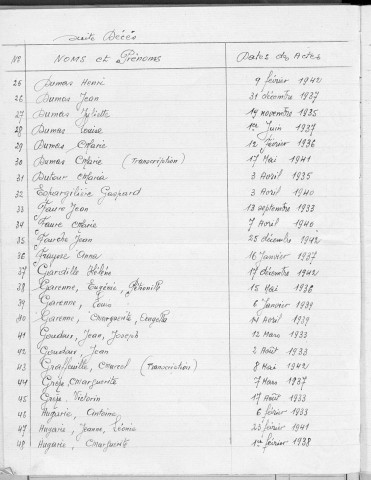 suite Décès
Nos NOMS et Prénoms Dates des Actes
25 Dumas Henri 9 février 1942
26 Dumas Jean 31 décembre 1937
27 Dumas Juliette 19 novembre 1935
28 Dumas Louise 1er Juin 1937
29 Dumas Marie 12 février 1936
30 Dumas Marie (Transcription) 17 Mai 1941
31 Dutour Maria 3 Avril 1935
32 Espargilière Gaspard 3 Avril 1940
33 Faure Jean 13 septembre 1933
34 Faure Marie 7 Avril 1940
35 Fourche Jean 25 décembre 1942
36 Anna 16 Janvier 1937
37 Gardille Hélène 17 décembre 1942
38 Garenne, Eugénie, 15 Mai 1936
39 Garenne, Louis 6 Janvier 1939
40 Garenne, Marguerite, 14 Avril 1939
41 Goudour, Jean, Joseph 12 Mars 1933
42 Goudour, Jean 2 Août 1933
43 Graffouille, Marcel (Transcription) 8 Mai 1942
44 Grèpe, Marguerite 7 Mars 1937
45 Grèpe, Victorin 17 Août 1933
46 Hugarie, Antoine 6 février 1933
47 Hugarie, Jeanne, Léonie 25 février 1941
48 Hugarie, Marguerite 1er février 1938